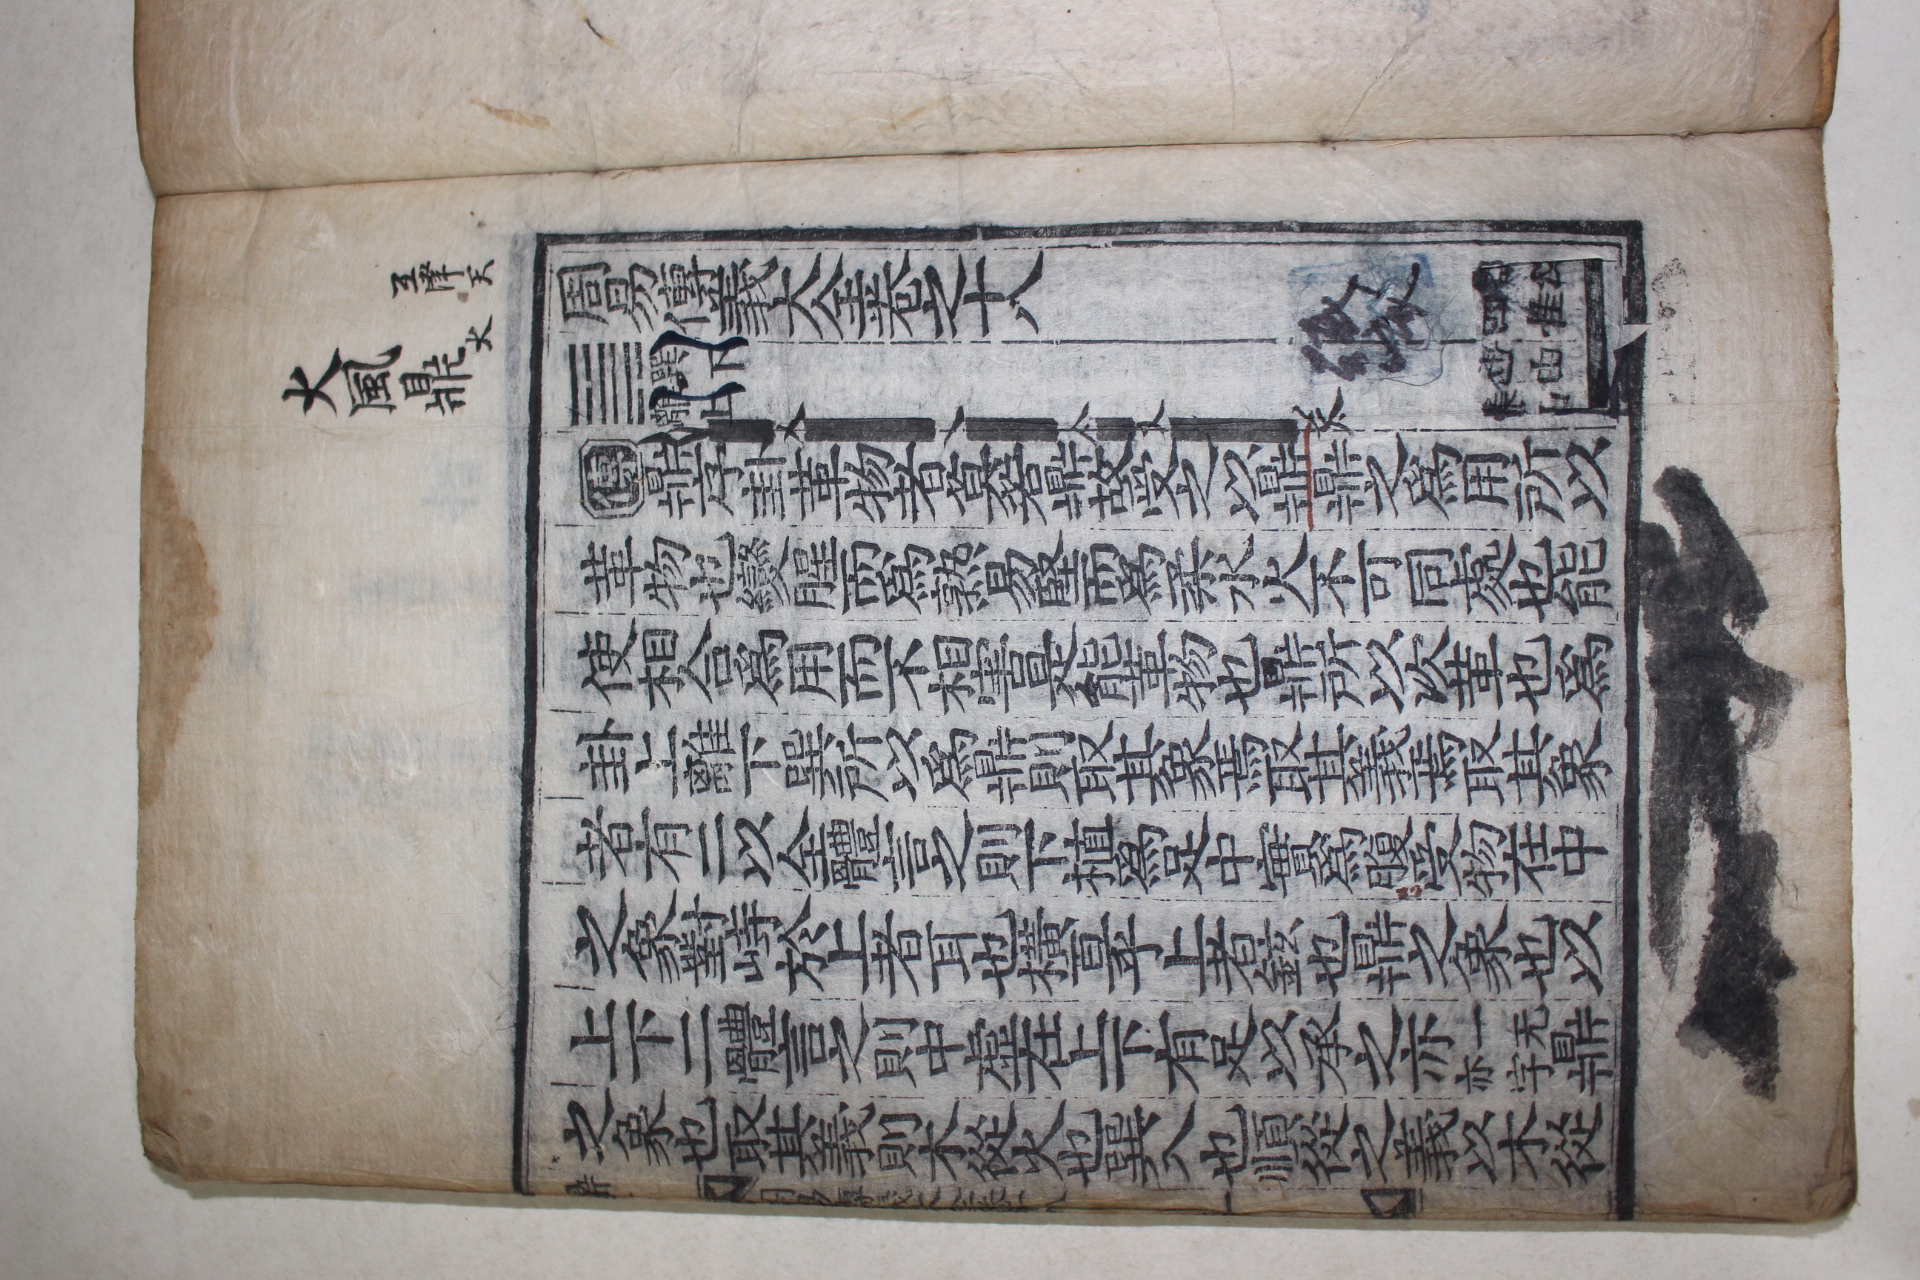 周易傳義大全卷之十八
䷱ 巽下離上
傳 鼎序卦革物者莫若鼎故受之以鼎鼎之爲用所以
革物也變腥而爲熟易堅而爲柔水火不可同處也能
使相合爲用而不相害是能革物也鼎所以次革也爲
卦上離下巽所以爲鼎則取其象焉取其義焉取其象
者有二以全體言之則下植爲足中實爲腹受物在中
之象對峙於上者耳也橫亘乎上者鉉也鼎之象也以
上下二體言之則中虛在上下有足以承之亦一无亦字鼎
之象也取其義則木從火也巽入也順從之義以木從
火風鼎